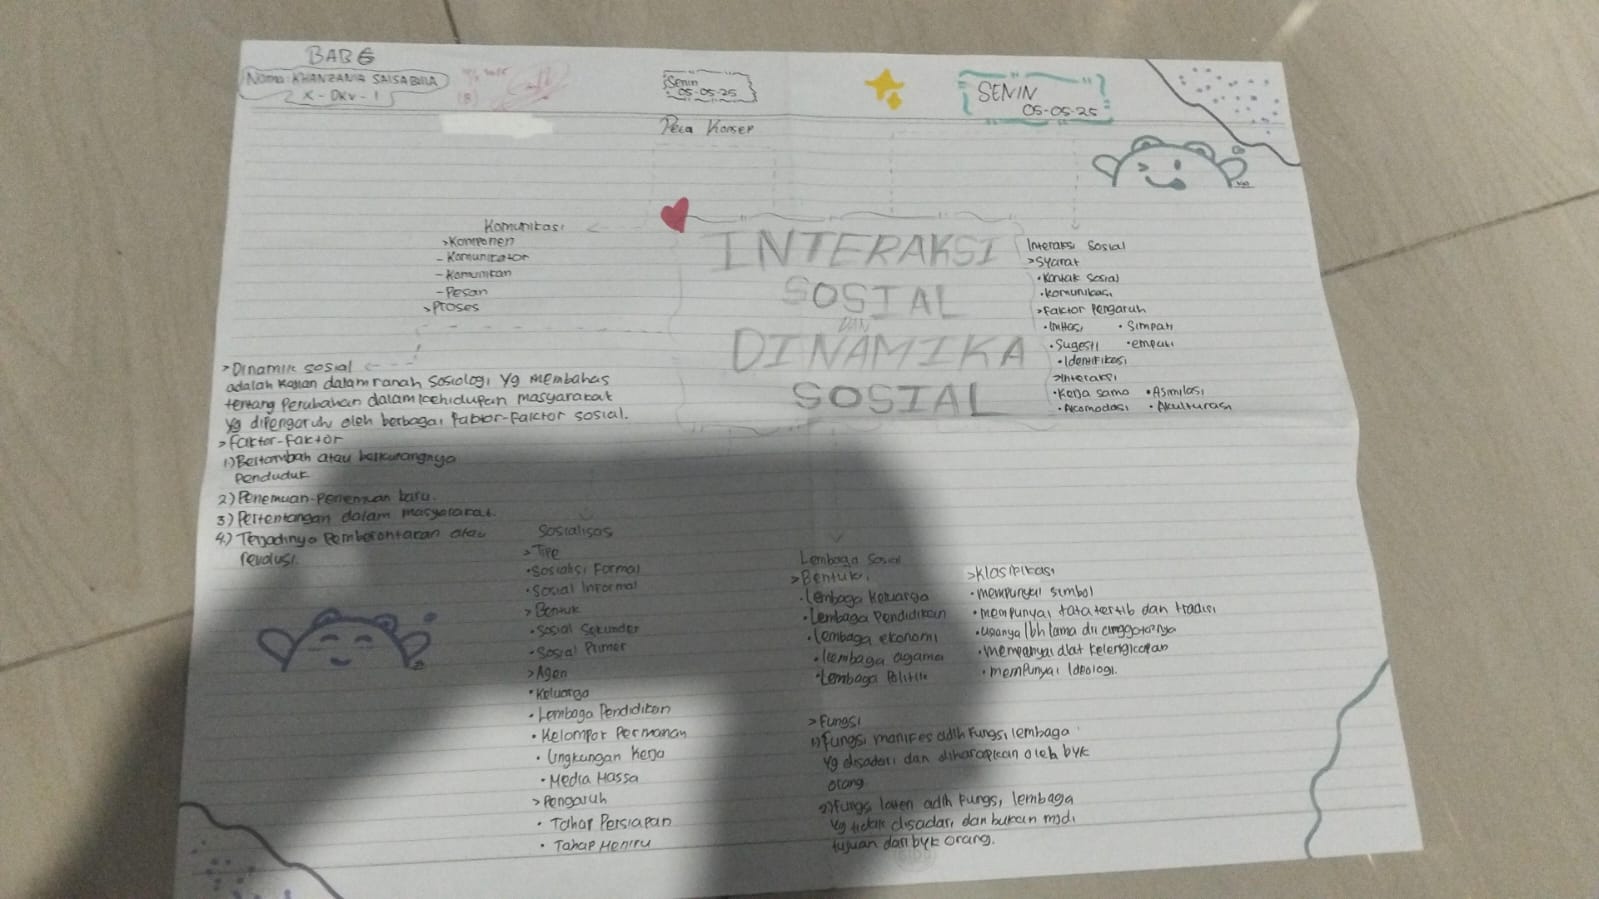 BAB 6
Nama: KHANZANIA SALSABILA
X - DKV - 1
Senin
05-05-25
SENIN
05-05-25
Peta Konsep
INTERAKSI
SOSIAL
DAN
DINAMIKA
SOSIAL
Komunikasi
>Komponen
- Komunikator
- Komunikan
- Pesan
> Proses
> Dinamik sosial
adalah kajian dalam ranah sosiologi yg membahas
tentang perubahan dalam kehidupan masyarakat
yg dipengaruhi oleh berbagai faktor-faktor sosial.
> Faktor-faktor
1) Bertambah atau berkurangnya
penduduk
2) Penemuan-penemuan baru.
3) Pertentangan dalam masyarakat.
4) Terjadinya Pemberontakan atau
revolusi.
Interaksi Sosial
>Syarat
• Kontak sosial
• Komunikasi
>Faktor Pengaruh
• Imitasi • Simpati
• Sugesti • empati
• Identifikasi
>Interaksi
• Kerja sama • Asimilasi
• Akomodasi • Akulturasi
Sosialisas
> Tipe
• Sosialisi Formal
• Sosial Informal
> Bentuk
• Sosial Sekunder
• Sosial Primer
>Agen
• Keluarga
• Lembaga Pendidikan
• Kelompok Permanan
• Lingkungan Kerja
• Media Massa
> Pengaruh
• Tahap Persiapan
• Tahap Meniru
Lembaga Sosial
>Bentuk
• Lembaga Keluarga
• Lembaga Pendidikan
• Lembaga ekonomi
• Lembaga agama
• Lembaga Politik
>Klasifikasi
• mempunyai simbol
• mempunyai tata tertib dan tradisi
• usianya lbh lama dri anggotanya
• mempunyai alat kelengkapan
• mempunyai Ideologi.
> Fungsi
1) Fungsi manifes adlh Fungsi lembaga
yg disadari dan diharapkan oleh byk
orang
2) Fungsi laten adlh Fungsi lembaga
yg tidak disadari dan bukan mjdi
tujuan dari byk orang.